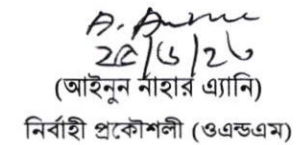 ২৫/৬/২৩
(আইনুন নাহার এ্যানি)
নির্বাহী প্রকৌশলী (ওএন্ডএম)